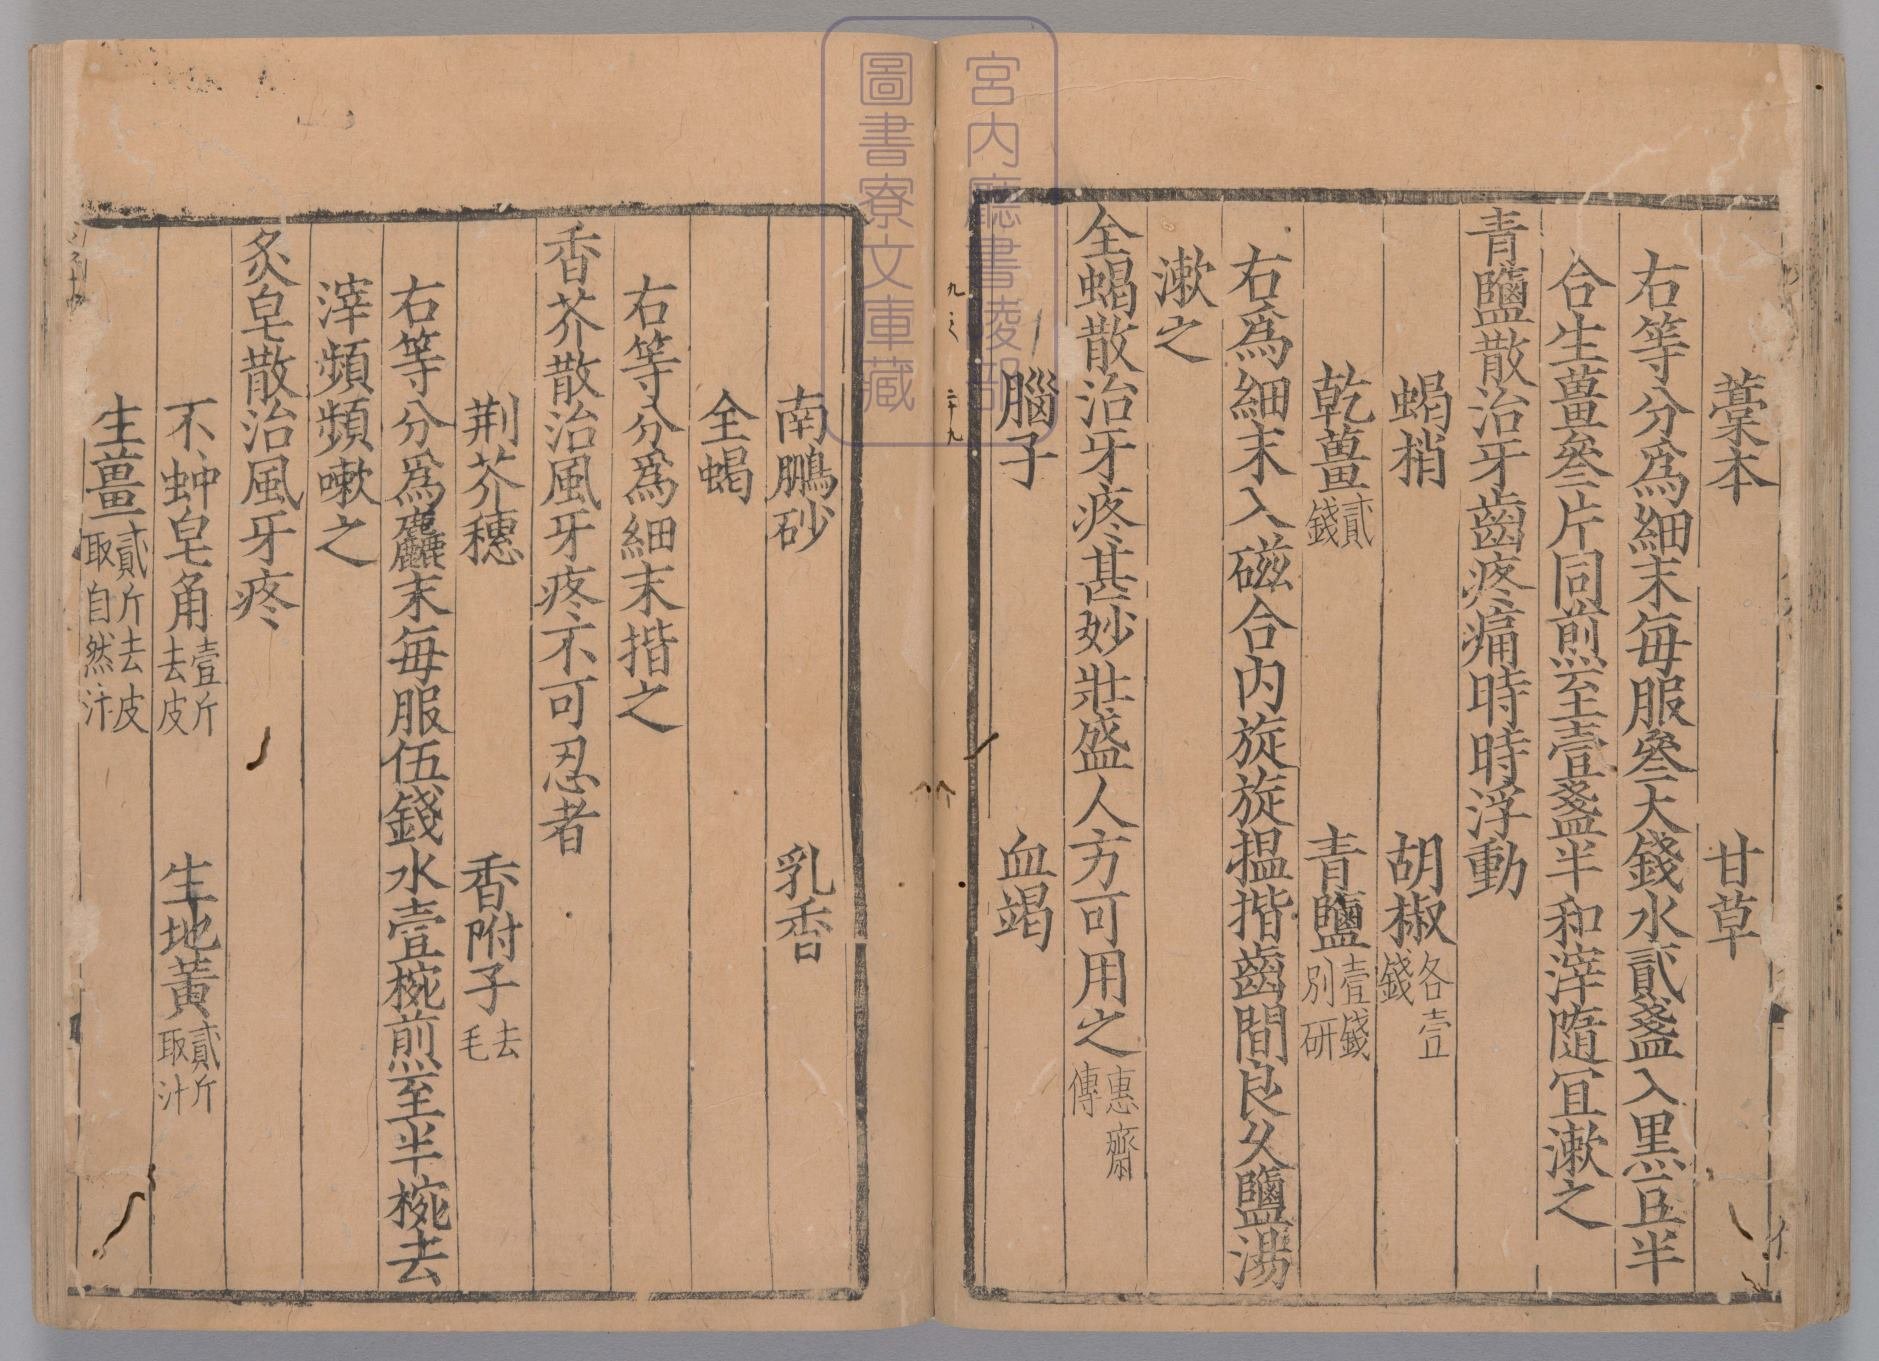 藁本 甘草
右等分爲細末每服叄大錢水貳盞入黑豆半
合生薑叄片同煎至壹盞半和滓隨冝漱之
青鹽散治牙齒疼痛時時浮動
蝎梢 胡椒各壹錢
乾薑貳錢 青鹽壹錢別研
右爲細末入磁合内旋旋揾揩齒間良久鹽湯
漱之
全蝎散治牙疼甚妙壯盛人方可用之惠齋傳
腦子 血竭
南鵬砂 乳香
全蝎
右等分爲細末揩之
香芥散治風牙疼不可忍者
荆芥穗 香附子去毛
右等分爲麤末每服伍錢水壹椀煎至半椀去
滓頻頻嗽之
炙皂散治風牙疼
不蚛皂角壹斤去皮 生地黃貳斤取汁
生薑貳斤去皮取自然汁
九之 二十九
宮内廳書陵部
圖書寮文庫藏